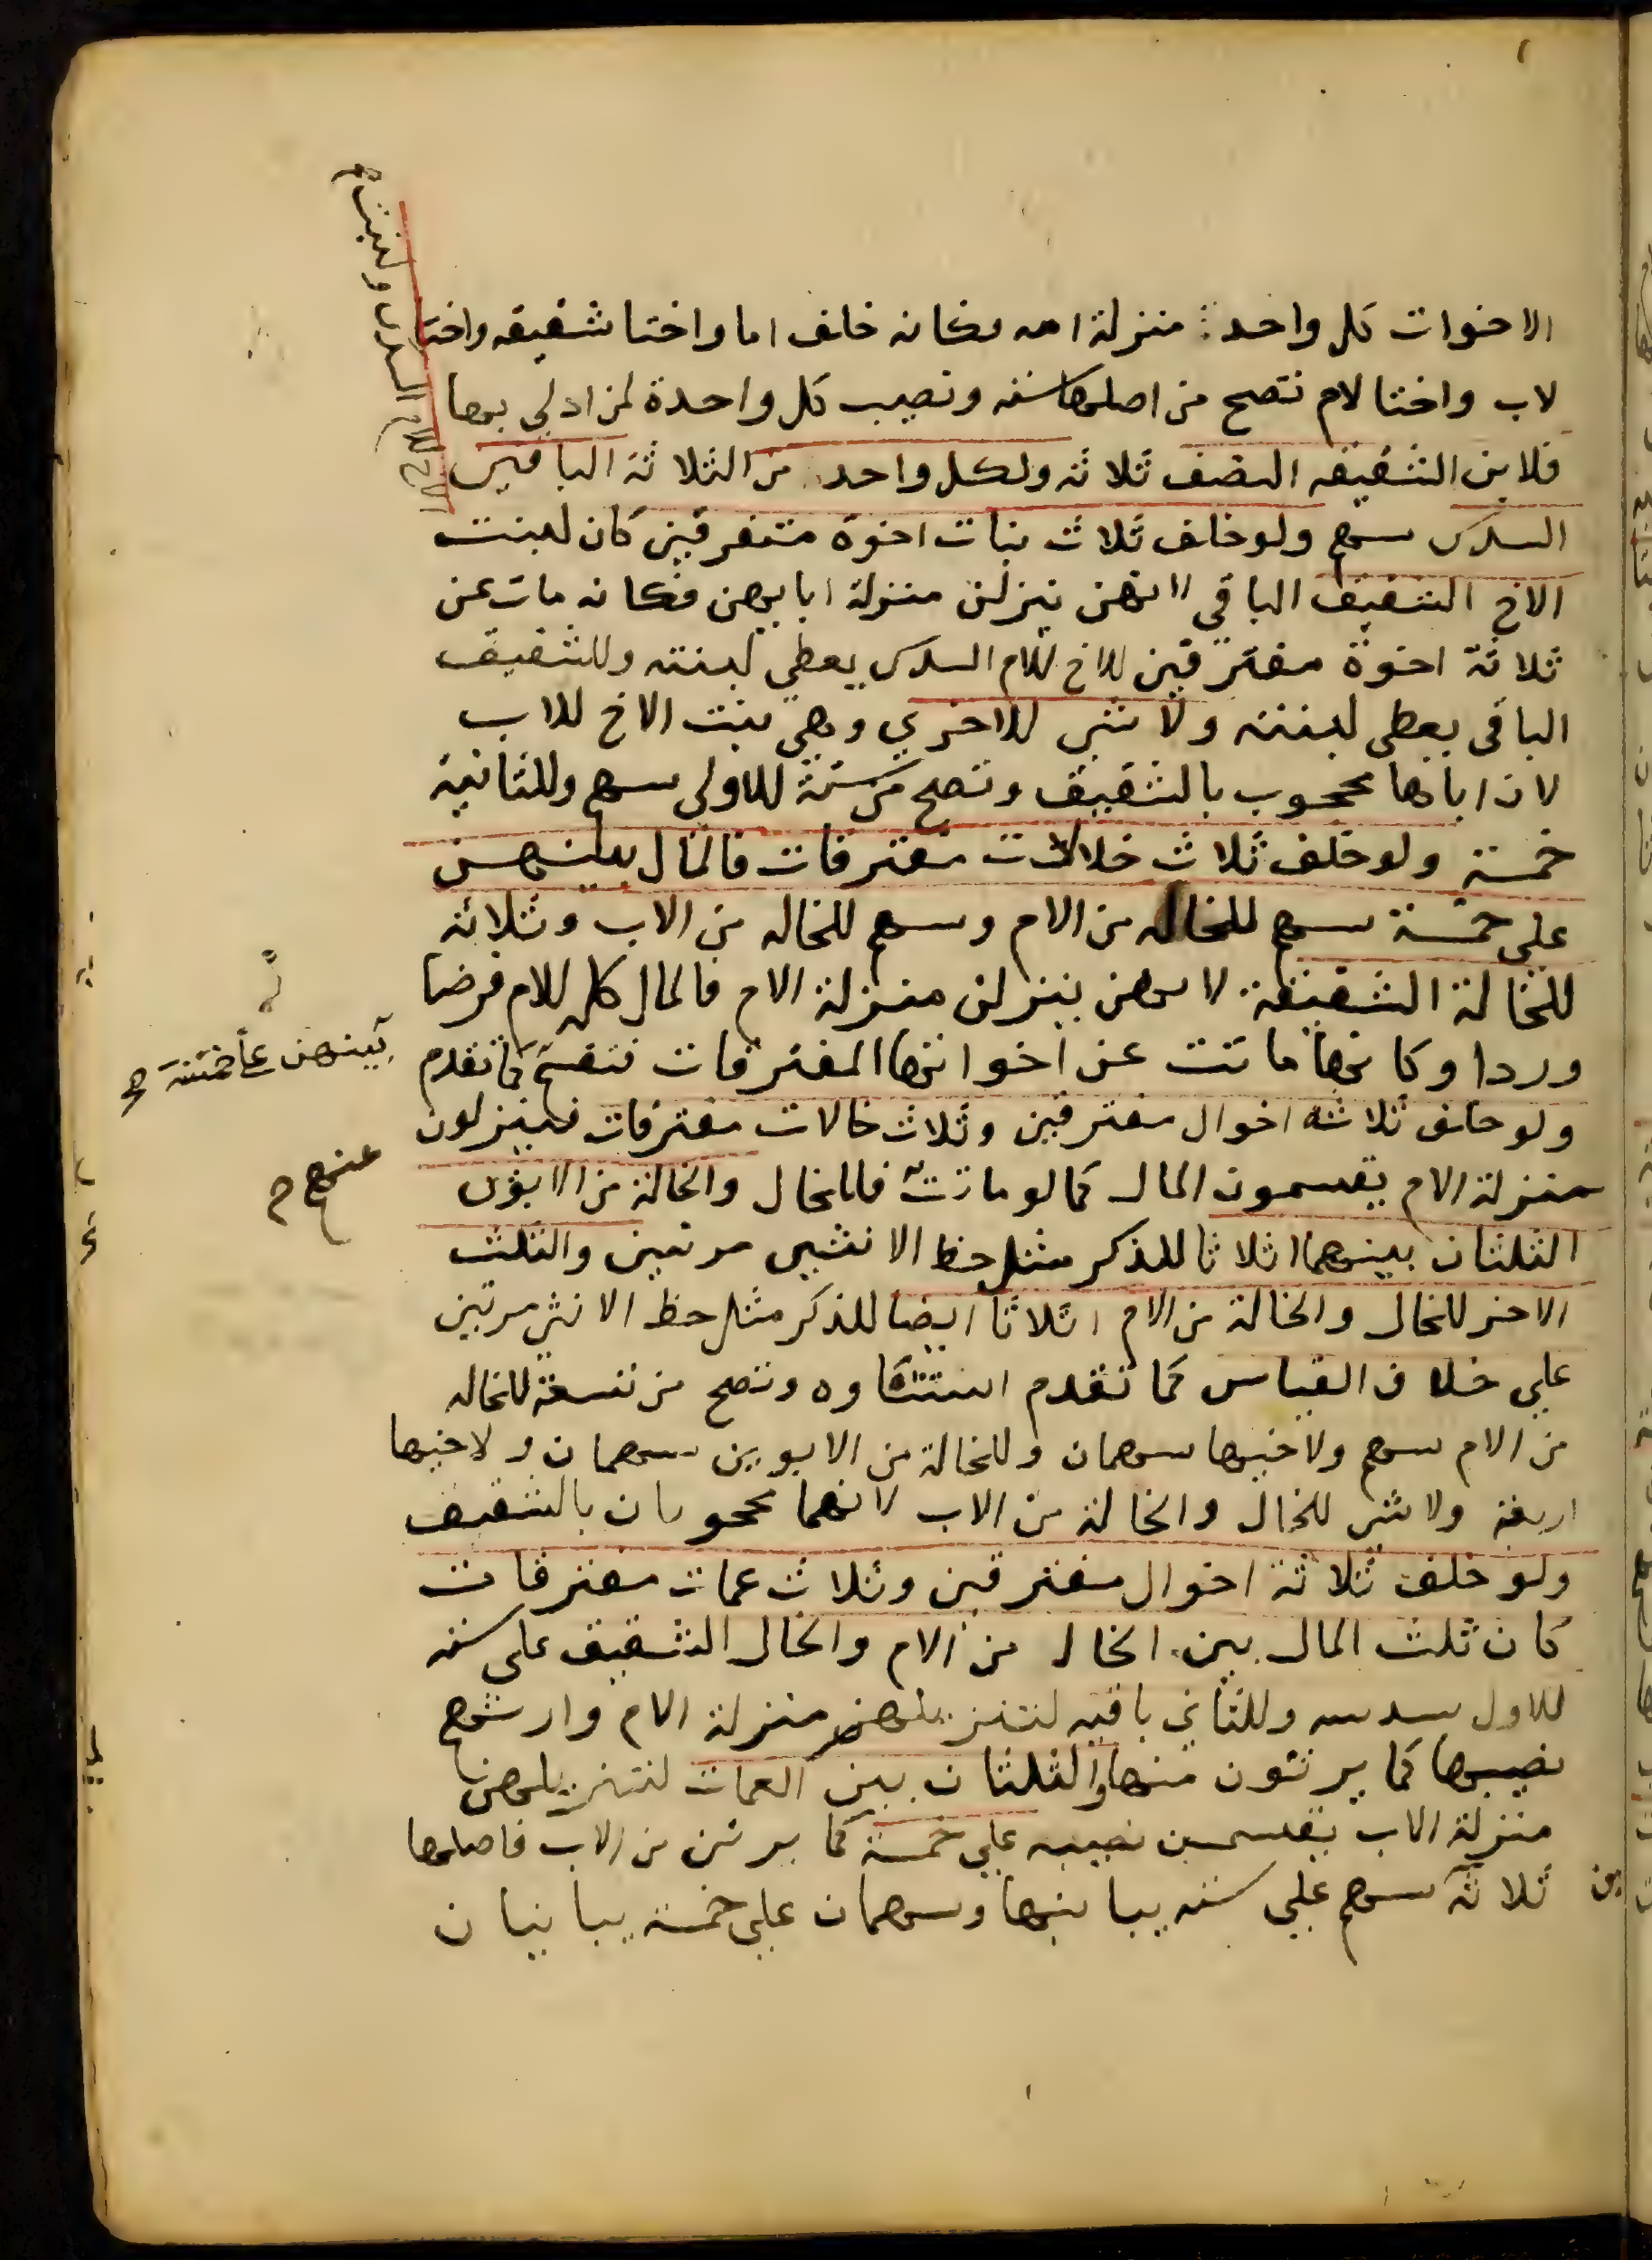 الاخوات كل واحد منزلة امه فكانه خلف اما واختا شقيقه واختا
لاب واختا لام تصح من اصلها سته ونصيب كل واحدة لمن ادلي بها
فلابن الشقيقه النصف ثلاثه ولكل واحد من الثلاثة الباقين
السدس سهم ولو خلف ثلاث بنات اخوة متفرقين كان لبنت
الاخ للام السدس ولبنت
الاخ الشقيف الباقي لانهن ينزلن منزلة ابايهن فكانه مات عن
ثلاثة اخوة مفترقين للاخ للام السدس يعطي لبنته وللشقيف
الباقي يعطي لبنته ولا شي للاخري وهي بنت الاخ للاب
لان اباها محجوب بالشقيف وتصح من ستة للاولي سهم وللثانية
خمسة ولو خلف ثلاث خالات مفترقات فالمال بينهن
علي خمسة سهم للخاله من الام وسهم للخاله من الاب وثلاثه
للخالة الشقيقة لانهن ينزلن منزلة الام فالمال كله للام فرضا
وردا وكانها ماتت عن اخواتها المفترقات فتقسم كما تقدم
بينهن علي خمسة
ولو خلف ثلاثة اخوال مفترقين وثلاث خالات مفترقات فينزلون
منزلة الام يقسمون المال كما لو ماتت فللخال والخالة من الابوين
عنهم
الثلثان بينهما اثلاثا للذكر مثل حظ الانثيين مرتين والثلث
الاخر للخال والخالة من الام اثلاثا ايضا للذكر مثل حظ الانثي مرتين
علي خلاف القياس كما تقدم استثناوه وتصح من تسعة للخاله
من الام سهم ولاخيها سهمان وللخالة من الابوين سهمان ولاخيها
اربعة ولا شي للخال والخالة من الاب لانهما محجوبان بالشقيف
ولو خلف ثلاثة اخوال مفترقين وثلاث عمات مفترقات
كان ثلث المال بين الخال من الام والخال الشقيق علي سته
للاول سدسه وللثاني باقيه لتنزيلهم منزلة الام وارثهم
نصيبها كما يرثون منها والثلثان بين العمات لتنزيلهن
منزلة الاب يقسمن نصيبه علي خمسة كما يرثن من الاب فاصلها
ثلاثة سهم علي سته يباينها وسهمان علي خمسة يباينان